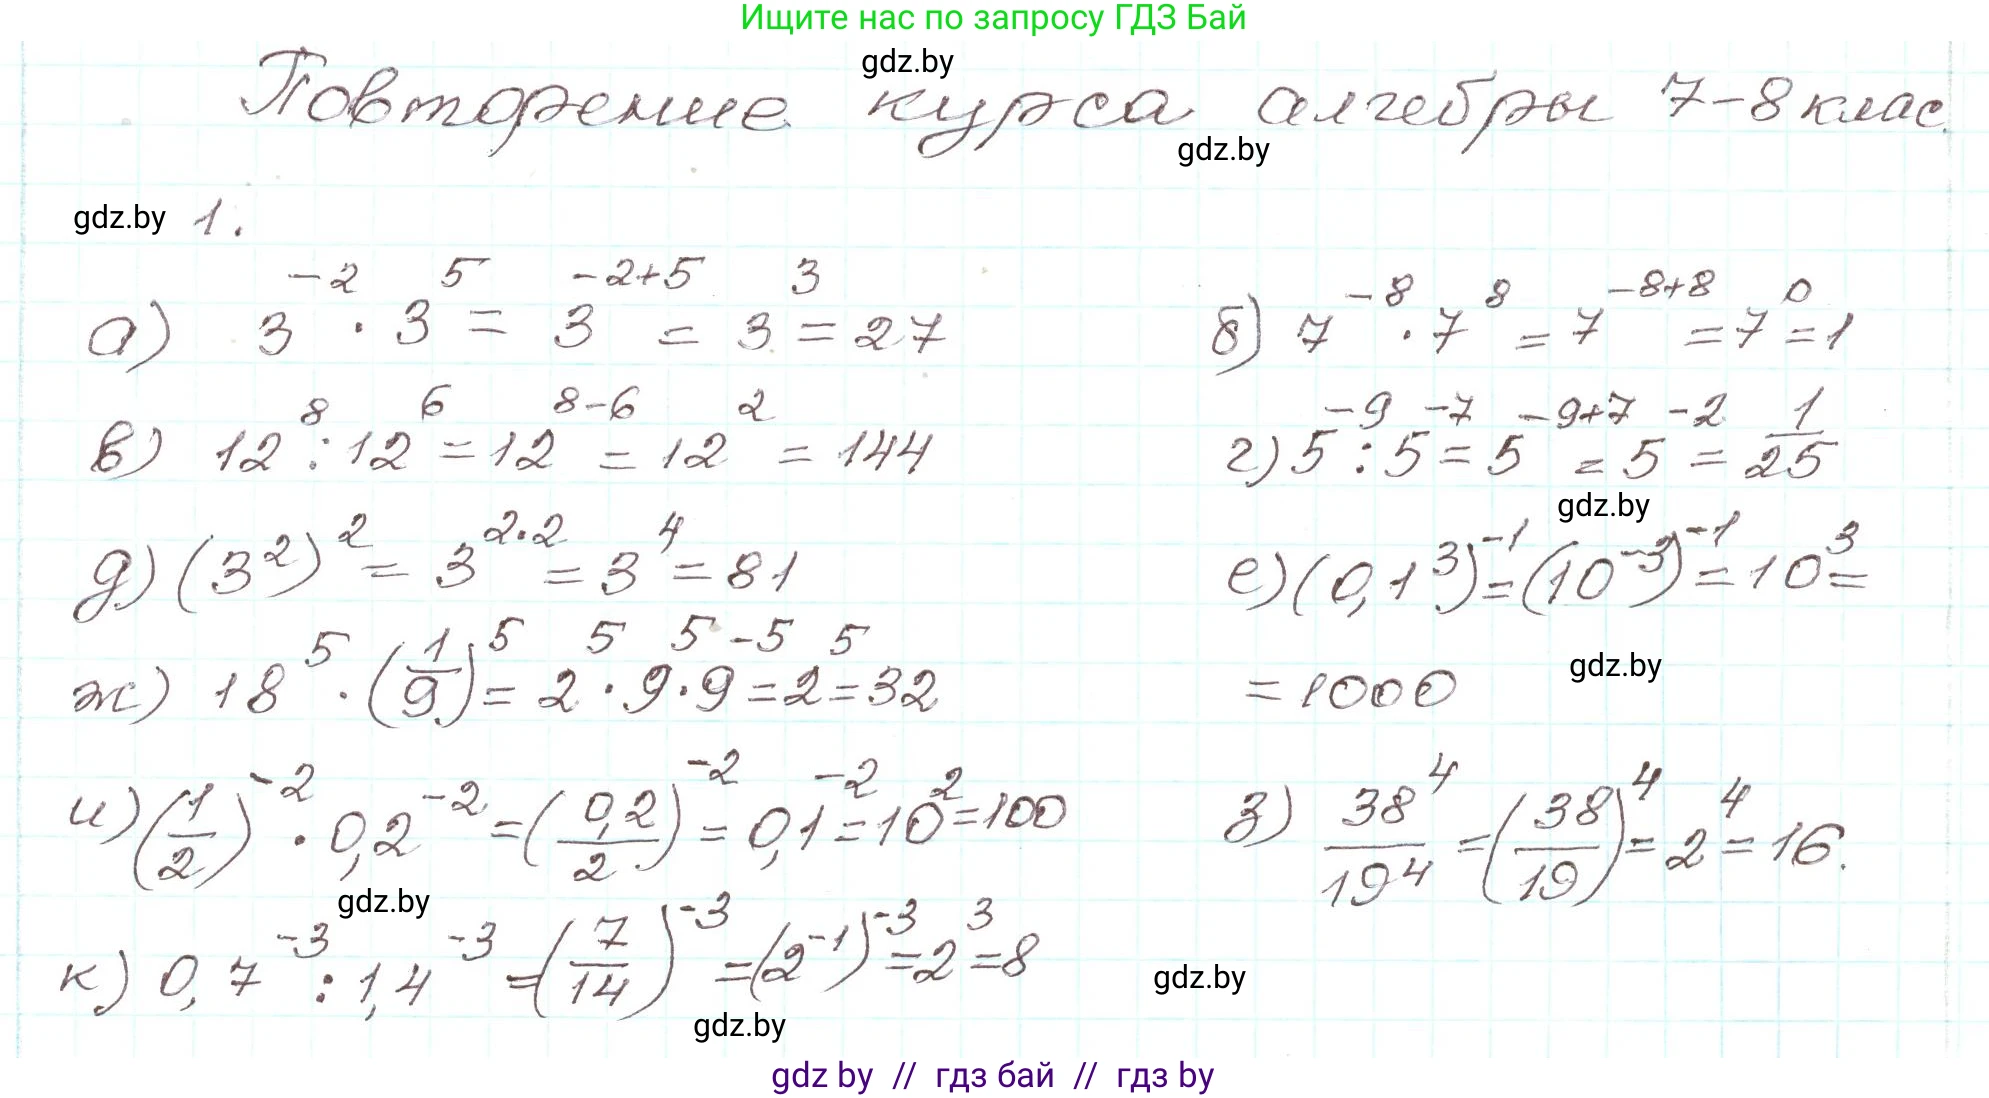 Ищите нас по запросу ГДЗ Бай
gdz.by
Повторение курса алгебры 7-8 клас.
gdz.by
gdz.by 1.
а) 3⁻² · 3⁵ = 3⁻²⁺⁵ = 3³ = 27
б) 7⁻⁸ · 7⁸ = 7⁻⁸⁺⁸ = 7⁰ = 1
в) 12⁸ : 12⁶ = 12⁸⁻⁶ = 12² = 144
г) 5⁻⁹ : 5⁻⁷ = 5⁻⁹⁺⁷ = 5⁻² = 1/25
gdz.by
д) (3²)² = 3²·² = 3⁴ = 81
е) (0,1³)⁻¹ = (10⁻³)⁻¹ = 10³ =
= 1000
gdz.by
ж) 18⁵ · (1/9)⁵ = 2⁵ · 9⁵ · 9⁻⁵ = 2⁵ = 32
з) 38⁴/19⁴ = (38/19)⁴ = 2⁴ = 16.
и) (1/2)⁻² · 0,2⁻² = (0,2/2)⁻² = 0,1⁻² = 10² = 100
gdz.by
к) 0,7⁻³ : 1,4⁻³ = (7/14)⁻³ = (2⁻¹)⁻³ = 2³ = 8
gdz.by
gdz.by
gdz by // гдз бай // гдз by